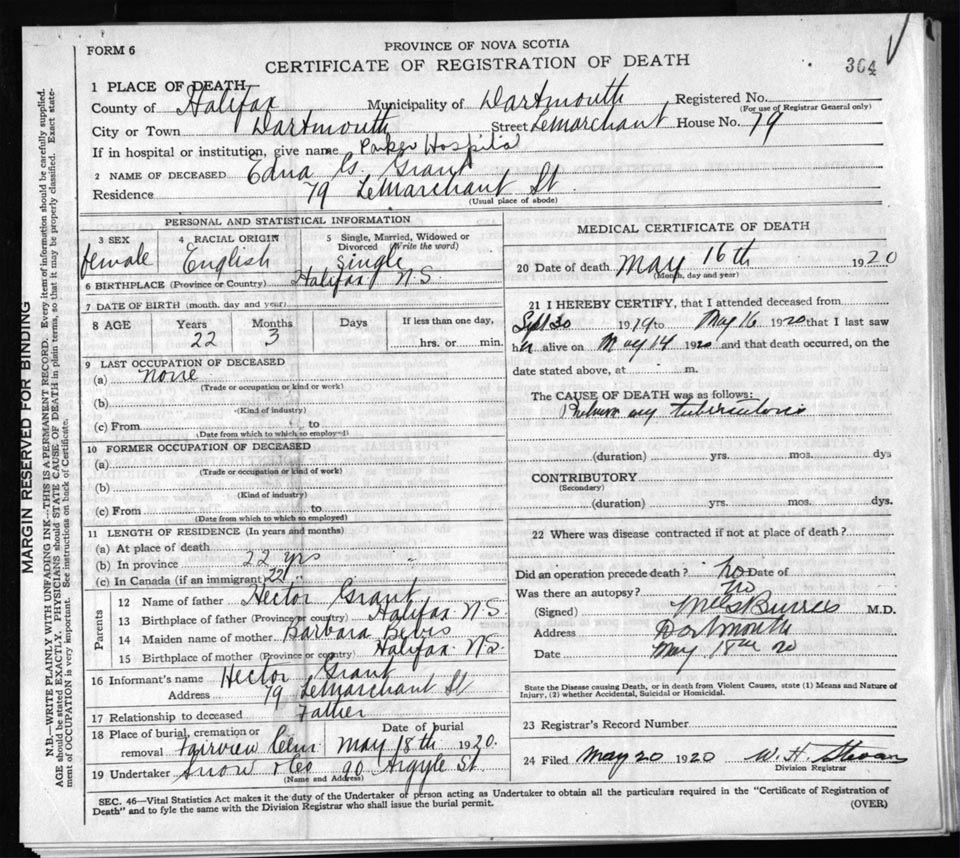 FORM 6
PROVINCE OF NOVA SCOTIA
CERTIFICATE OF REGISTRATION OF DEATH
364
1 PLACE OF DEATH
County of Halifax Municipality of Dartmouth Registered No.
(For use of Registrar General only)
City or Town Dartmouth Street LeMarchant House No. 79
If in hospital or institution, give name Parker Hospital
2 NAME OF DECEASED Edna G. Grant
Residence 79 LeMarchant St
(Usual place of abode)
PERSONAL AND STATISTICAL INFORMATION
3 SEX female
4 RACIAL ORIGIN English
5 Single, Married, Widowed or Divorced (Write the word) Single
6 BIRTHPLACE (Province or Country) Halifax N.S.
7 DATE OF BIRTH (month, day and year)
8 AGE Years 22 Months 3 Days If less than one day, hrs. or min.
9 LAST OCCUPATION OF DECEASED
(a) none
(Trade or occupation or kind or work)
(b)
(Kind of industry)
(c) From to
(Date from which to which so employed)
10 FORMER OCCUPATION OF DECEASED
(a)
(Trade or occupation or kind of work)
(b)
(Kind of industry)
(c) From to
(Date from which to which so employed)
11 LENGTH OF RESIDENCE (In years and months)
(a) At place of death
(b) In province 22 yrs
(c) In Canada (if an immigrant) 22 "
Parents
12 Name of father Hector Grant
13 Birthplace of father (Province or country) Halifax N.S.
14 Maiden name of mother Barbara Bevis
15 Birthplace of mother (Province or country) Halifax N.S.
16 Informant's name Hector Grant
Address 79 LeMarchant St
17 Relationship to deceased Father
18 Place of burial, cremation or removal Fairview Cem Date of burial May 18th 1920.
19 Undertaker Snow & Co 90 Argyle St.
(Name and Address)
MEDICAL CERTIFICATE OF DEATH
20 Date of death May 16th 1920
(Month, day and year)
21 I HEREBY CERTIFY, that I attended deceased from
Sept 30 1919 to May 16 1920 that I last saw
her alive on May 14 1920 and that death occurred, on the
date stated above, at m.
The CAUSE OF DEATH was as follows:
Pulmonary tuberculosis
(duration) yrs. mos. dys
CONTRIBUTORY
(Secondary)
(duration) yrs. mos. dys.
22 Where was disease contracted if not at place of death?
Did an operation precede death? No Date of
Was there an autopsy? No
(Signed) M.D.
Address Dartmouth
Date May 18th 20
State the Disease causing Death, or in death from Violent Causes, state (1) Means and Nature of
Injury, (2) whether Accidental, Suicidal or Homicidal.
23 Registrar's Record Number
24 Filed May 20 1920 W. H.
Division Registrar
SEC. 46—Vital Statistics Act makes it the duty of the Undertaker of person acting as Undertaker to obtain all the particulars required in the "Certificate of Registration of
Death" and to fyle the same with the Division Registrar who shall issue the burial permit.
(OVER)
MARGIN RESERVED FOR BINDING
N.B.—WRITE PLAINLY WITH UNFADING INK—THIS IS A PERMANENT RECORD. Every item of information should be carefully supplied.
AGE should be stated EXACTLY. PHYSICIANS should STATE CAUSE OF DEATH in plain terms, so that it may be properly classified. Exact state-
ment of OCCUPATION is very important. See instructions on back of Certificate.